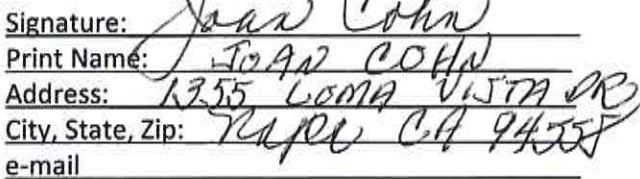 Signature: Joan Cohn
Print Name: JOAN COHN
Address: 1355 LOMA VISTA DR
City, State, Zip: Napa CA 94558
e-mail